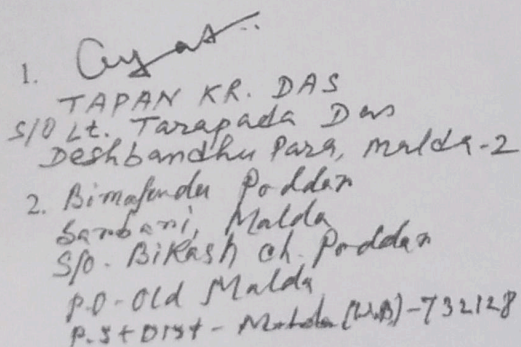 1.
TAPAN KR. DAS
S/O Lt. Tarapada Das
Deshbandhu Para, Malda-2
2. Bimalendu Poddar
Sarbani, Malda
S/o. Bikash ch. Poddar
P.O - Old Malda
P.S + Dist - Malda (W.B) - 732128